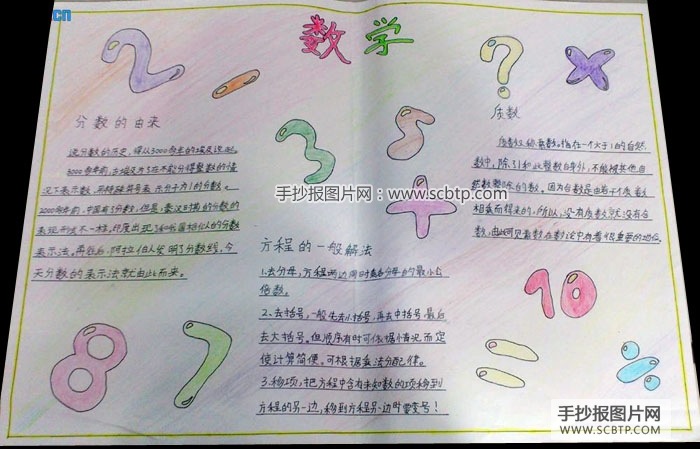 cn
数学
2
-
?
×
分数的由来
说分数的历史，得从3000多年前的埃及说起。
3000多年前，古埃及为了在不能分得整数的情
况下表示数，用特殊符号表示分子为1的分数。
2000多年前，中国有了分数，但是，秦汉时期的分数的
表现形式不一样。印度出现了和我国相似的分数
表示法。再往后，阿拉伯人发明了分数线，今
天分数的表示法就由此而来。
3
5
+
质数
质数又称素数。指在一个大于1的自然
数中，除了1和此整数自身外，不能被其他自
然数整除的数。因为合数是由若干个质数
相乘而得来的，所以，没有质数就没有合
数，由此可见素数在数论中有着很重要的地位。
手抄报图片网：www.scbtp.com
方程的一般解法
1.去分母，方程两边同时乘各分母的最小公
倍数。
2、去括号，一般先去小括号，再去中括号，最后
去大括号。但顺序有时可依据情况而定
使计算简便。可根据乘法分配律。
3.移项，把方程中含有未知数的项移到
方程的另一边，移到方程另一边时要变号！
8
7
10
=
÷
手抄报图片网
WWW.SCBTP.COM